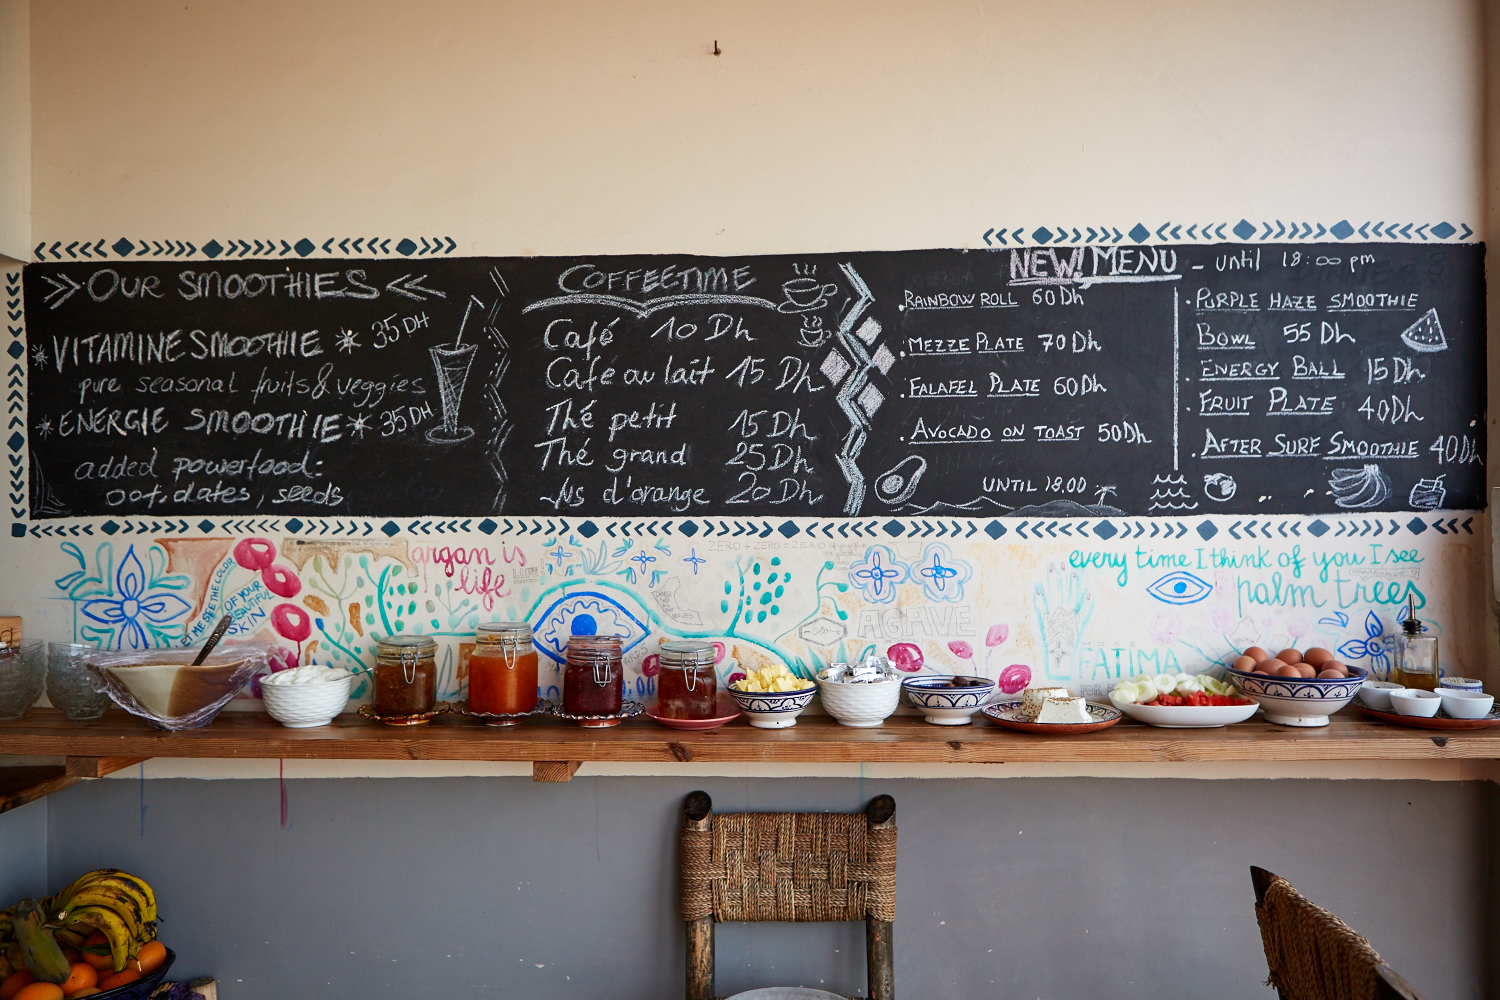 OUR SMOOTHIES
VITAMINE SMOOTHIE 35 DH
pure seasonal fruits & veggies
ENERGIE SMOOTHIE 35 DH
added powerfood:
oat, dates, seeds
COFFEETIME
Café 10 Dh
Café au lait 15 Dh
Thé petit 15 Dh
Thé grand 25 Dh
Jus d'orange 20 Dh
NEW! MENU - until 18:00 pm
RAINBOW ROLL 60 Dh
MEZZE PLATE 70 Dh
FALAFEL PLATE 60 Dh
AVOCADO ON TOAST 50 Dh
UNTIL 18.00
PURPLE HAZE SMOOTHIE
BOWL 55 Dh
ENERGY BALL 15 Dh
FRUIT PLATE 40 Dh
AFTER SURF SMOOTHIE 40 Dh
LET ME SEE THE COLOR
OF YOUR
BEAUTIFUL
SKIN
argan is
life
ZERO + ZERO = ZERO
AGAVE
FATIMA
every time I think of you I see
palm trees